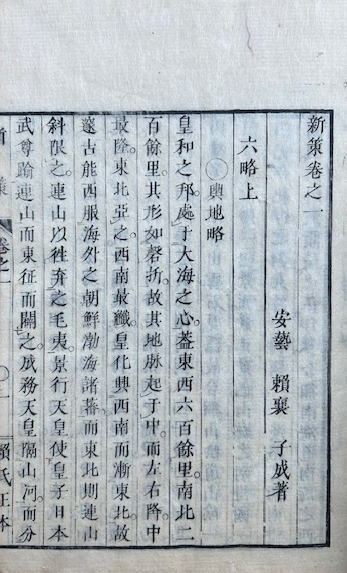 新策卷之一
安藝 賴襄 子成著
六略上
○輿地略
皇和之邦。處于大海之心。蓋東西六百餘里。南北二
百餘里。其形如磬折。故其地脉起于中。而左右降。中
最隆。東北亞之。西南最纖。皇化興西南而漸東北。故
邃古能西服海外之朝鮮渤海諸蕃。而東北則連山
斜限之。連山以往。弃之毛夷。景行天皇使皇子日本
武尊踰連山而東征而闢之。成務天皇隔山河。而分
新策 卷之一 ○一 賴氏正本